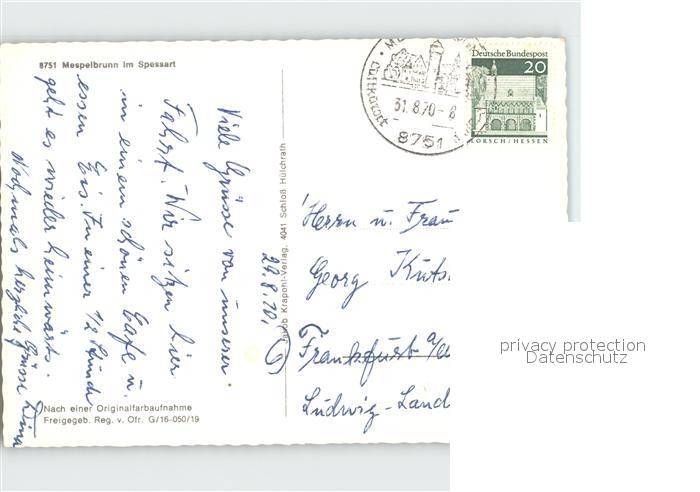 8751 Mespelbrunn im Spessart
Viele Grüsse von unserer
Fahrt. Wir sitzen hier
in einem schönen Cafe u.
essen Eis. In einer 1/2 Stunde
geht es wieder heimwärts.
Nochmals herzliche Grüsse
Nach einer Originalfarbaufnahme
Freigegeb. Reg. v. Ofr. G/16-050/19
29.8.70.
Jakob Krapohl-Verlag, 4041 Schloß Hülchrath
Luftkurort
31.8.70-8
8751
Deutsche Bundespost
20
LORSCH/HESSEN
Herrn u. Frau
Georg Kuts
Frankfurt a/M
Ludwig-Land
privacy protection
Datenschutz